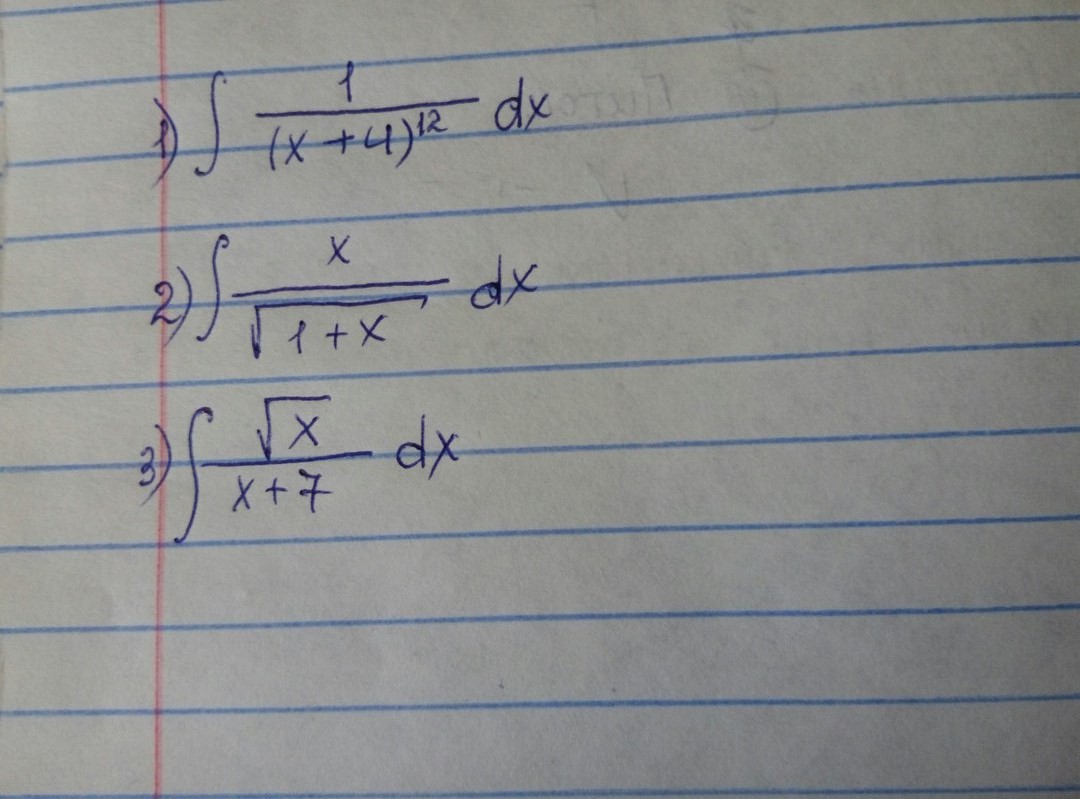 1) ∫ 1/(x+4)^12 dx
2) ∫ x/√(1+x) dx
3) ∫ √x/(x+7) dx